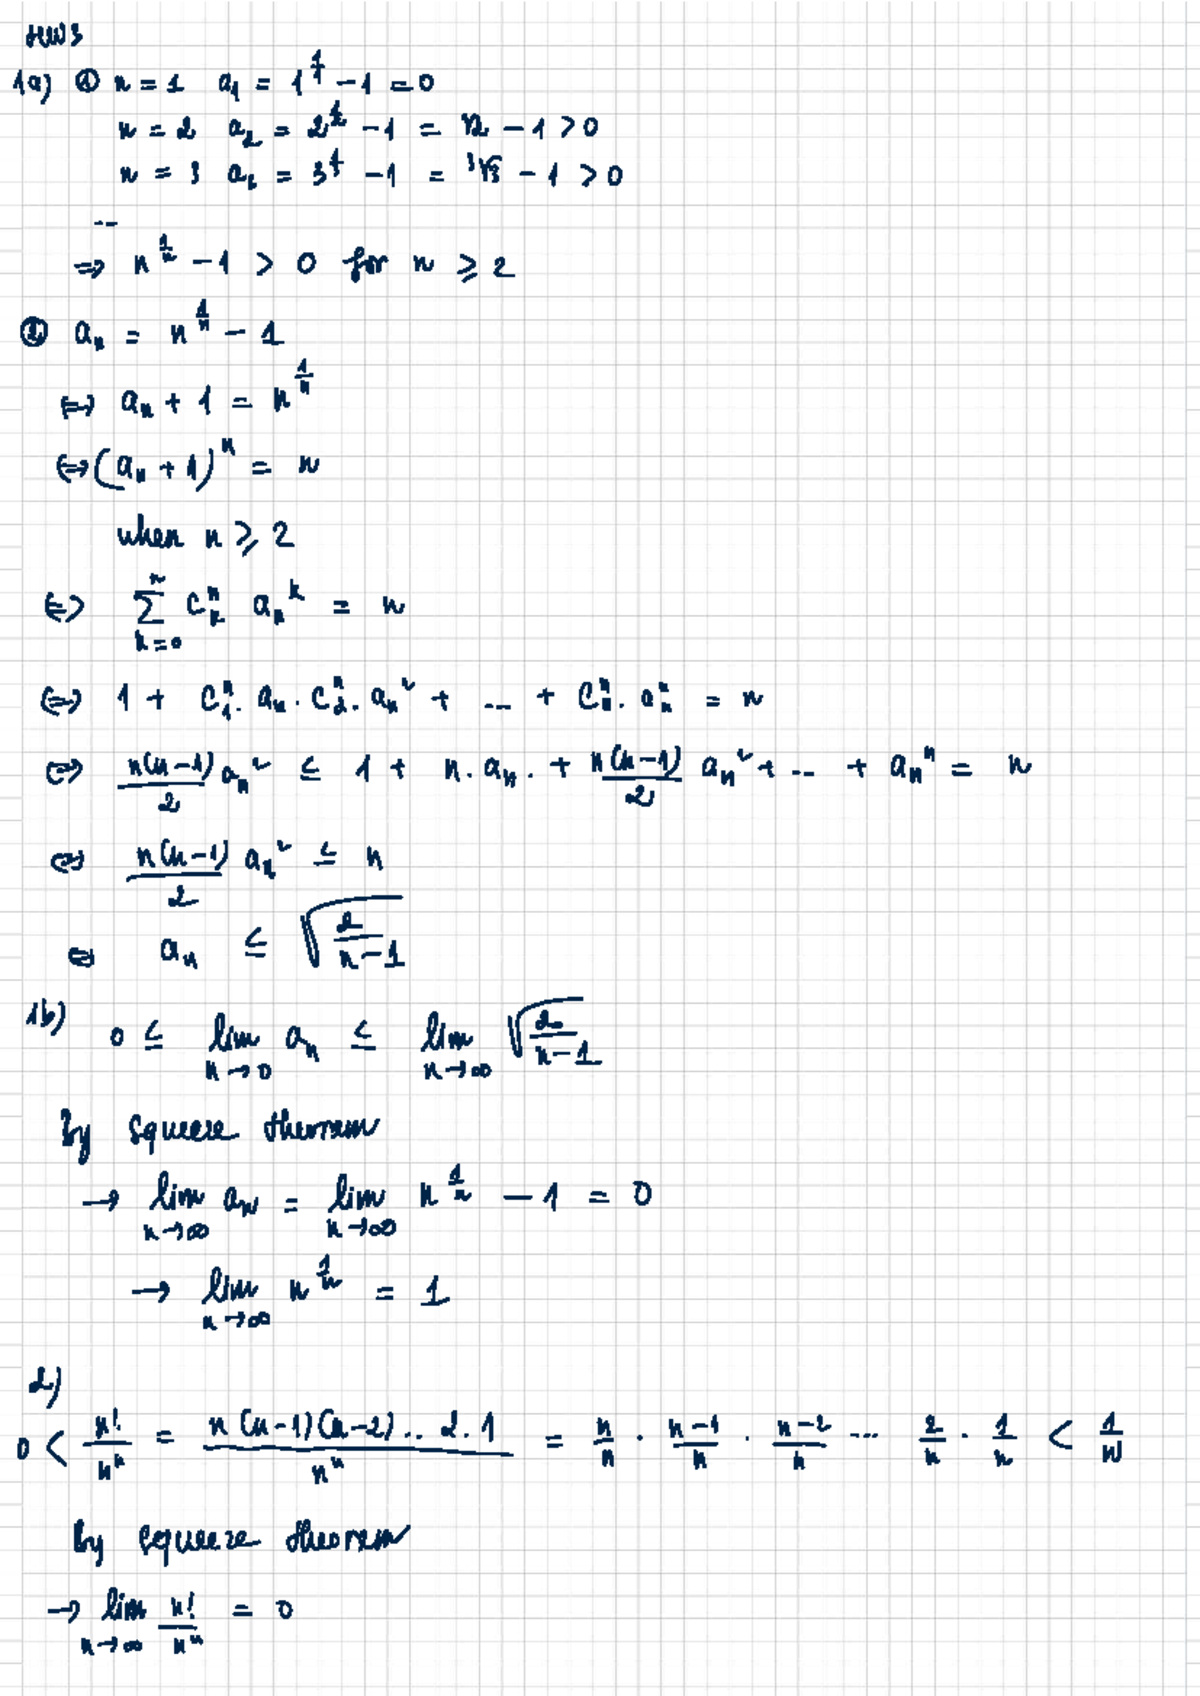 HW3
1a) ① n = 1 a₁ = 1^{1/1} - 1 = 0
n = 2 a₂ = 2^{1/2} - 1 = √2 - 1 > 0
n = 3 a₃ = 3^{1/3} - 1 = ³√3 - 1 > 0
...
⇒ n^{1/n} - 1 > 0 for n ≥ 2
② aₙ = n^{1/n} - 1
⇔ aₙ + 1 = n^{1/n}
⇔ (aₙ + 1)^n = n
when n ≥ 2
⇔ ∑_{k=0}^{n} C_k^n aₙ^k = n
⇔ 1 + C_1^n . aₙ . C_2^n . aₙ^2 + ... + C_n^n . aₙ^n = n
⇔ n(n-1)/2 aₙ^2 ≤ 1 + n . aₙ . + n(n-1)/2 aₙ^2 + ... + aₙ^n = n
⇔ n(n-1)/2 aₙ^2 ≤ n
⇔ aₙ ≤ √(2/(n-1))
1b) 0 ≤ lim_{n→0} aₙ ≤ lim_{n→∞} √(2/(n-1))
By squeeze theorem
→ lim_{n→∞} aₙ = lim_{n→∞} n^{1/n} - 1 = 0
→ lim_{n→∞} n^{1/n} = 1
2)
0 < n!/n^n = n(n-1)(n-2)..2.1/n^n = n/n . (n-1)/n . (n-2)/n ... 2/n . 1/n < 1/n
By squeeze theorem
→ lim_{n→∞} n!/n^n = 0